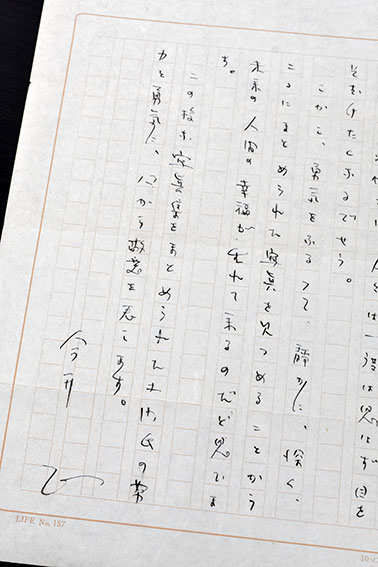 人は一度は思はず目を
そむけたくなるでせう。
しかし、勇気をふるって静かに、深く、
ここにまとめられた写真を見つめることから
未来の人間の幸福が生れて来るのだと思ひま
す。
この様な写真集をまとめられた土門氏の努
力と勇気に、心から敬意を表します。
今井
LIFE. No. 157
10×